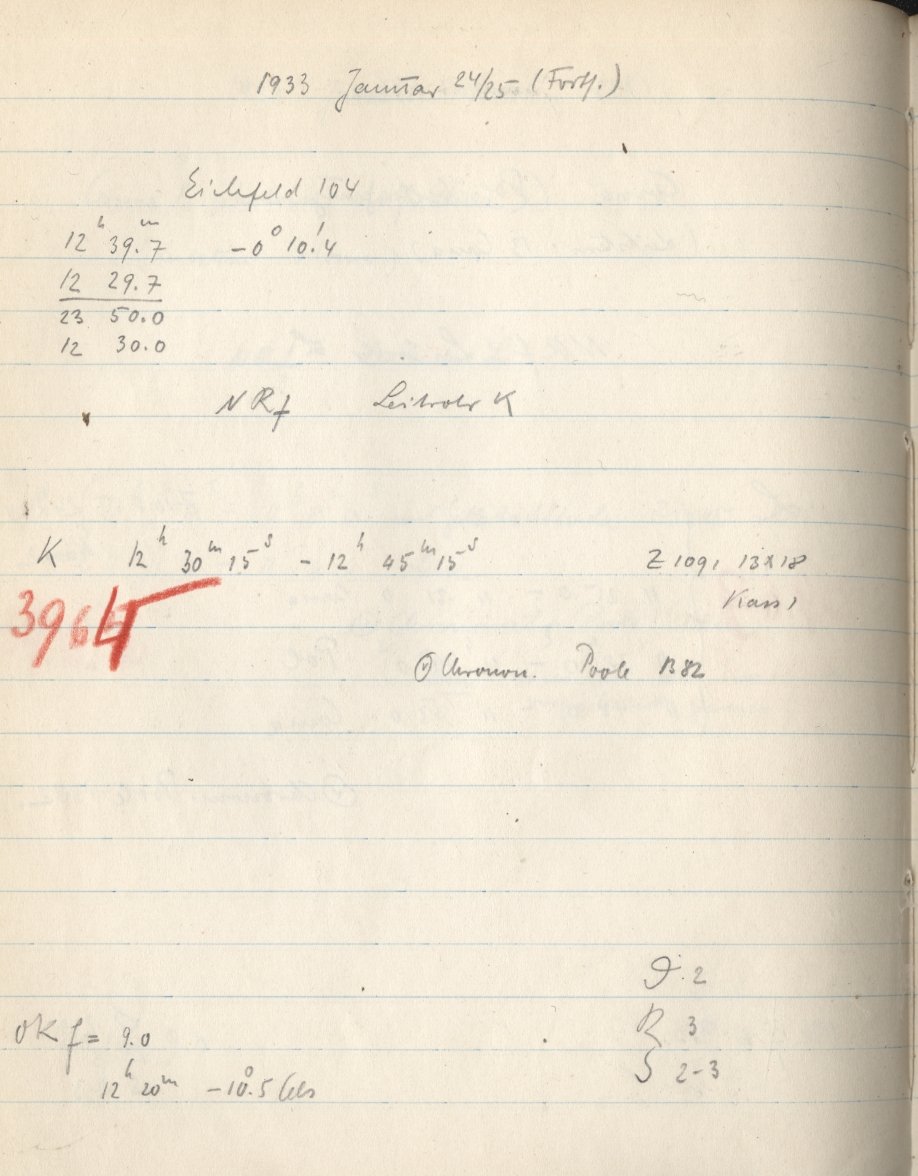 1933 Januar 24/25 (Forts.)
Eichfeld 104
12ʰ 39.7ᵐ −0° 10.'4
12 29.7
23 50.0
12 30.0
NRf Leitrohr K
K 12ʰ 30ᵐ 15ˢ - 12ʰ 45ᵐ 15ˢ Z 109, 13x18
Kass,
3965
Chronom. Poole B82
D. 2
R 3
S 2-3
OK f = 9.0
12ʰ 20ᵐ −10°.5 Cels